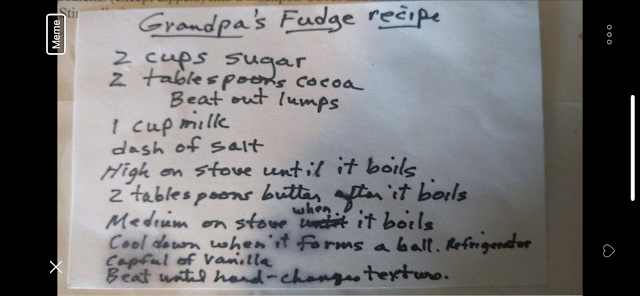 Meme
Grandpa's Fudge recipe
2 cups sugar
2 tablespoons cocoa
Beat out lumps
1 cup milk
dash of salt
High on stove until it boils
2 tablespoons butter after it boils
when
Medium on stove until it boils
Cool down when it forms a ball. Refrigerator
Capful of vanilla
Beat until hard-changes texture.